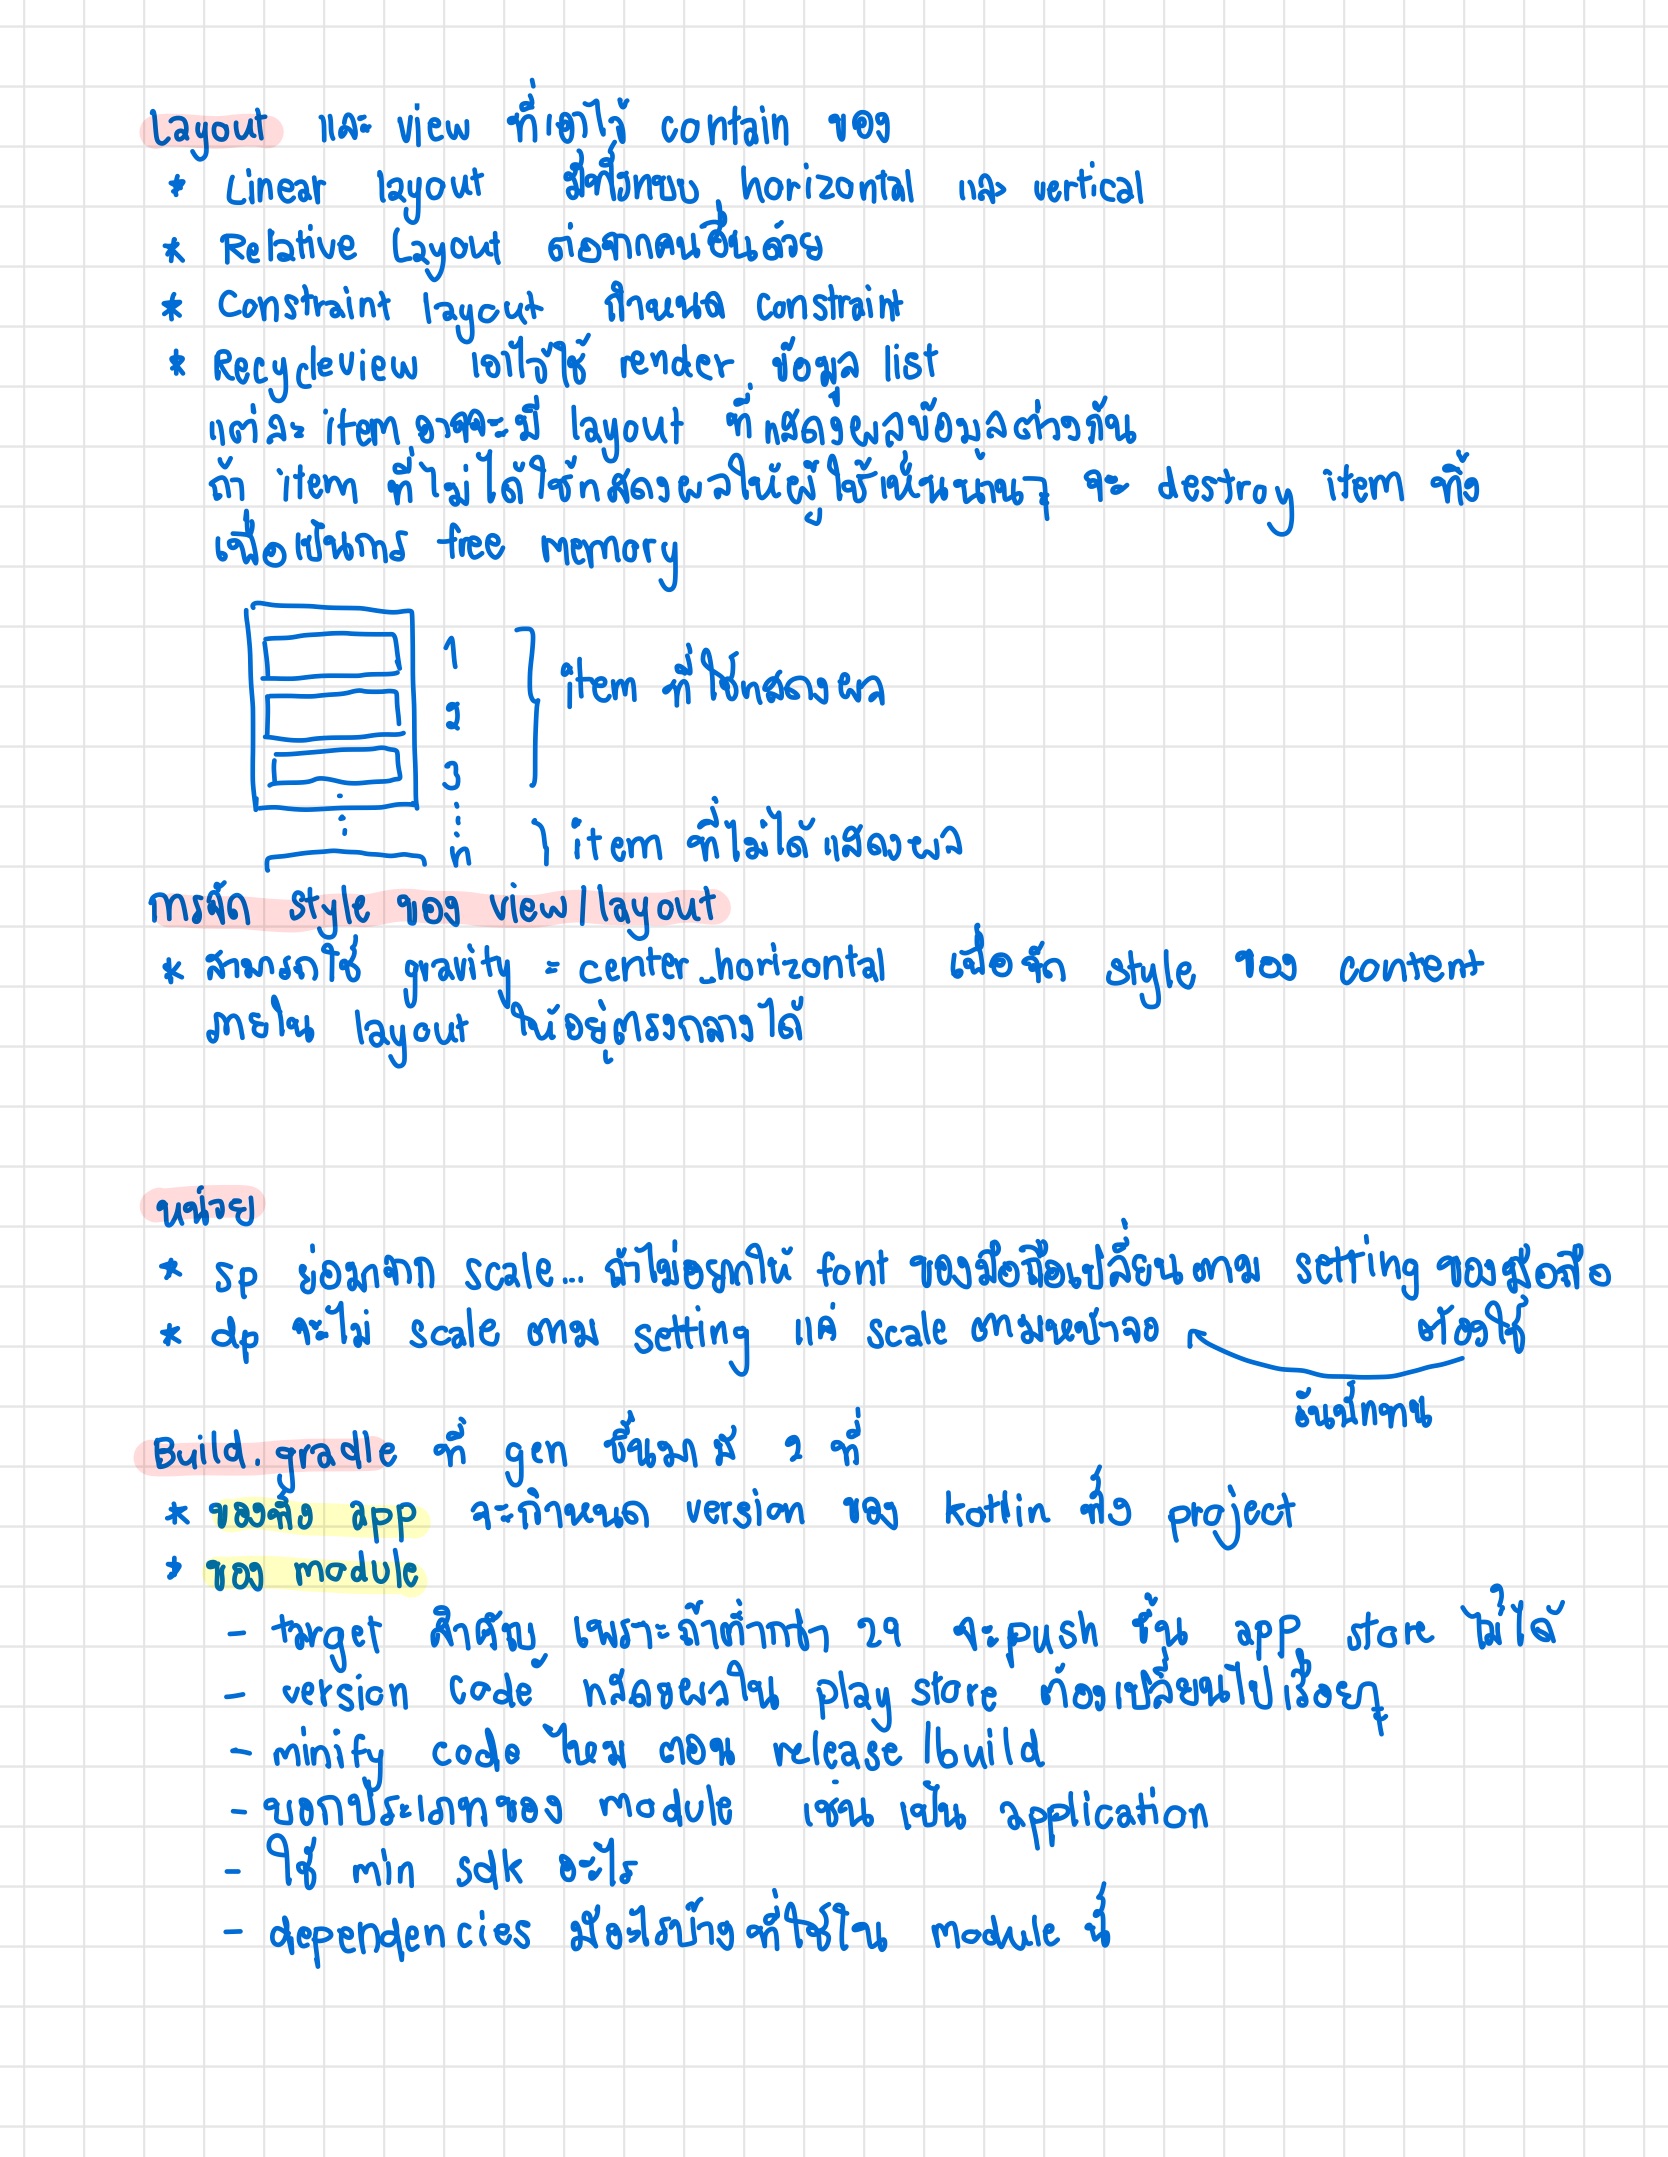 Layout และ view ที่เอาไว้ contain ของ
* Linear layout มีทั้งแบบ horizontal และ vertical
* Relative Layout ต่อจากคนอื่นด้วย
* Constraint layout กำหนด constraint
* Recycleview เอาไว้ใช้ render ข้อมูล list
แต่ละ item อาจจะมี layout ที่แสดงผลข้อมูลต่างกัน
ถ้า item ที่ไม่ได้ใช้แสดงผลให้ผู้ใช้เห็นนานๆ จะ destroy item ทิ้ง
เพื่อเป็นการ free memory
1
2
3
item ที่ใช้แสดงผล
n
item ที่ไม่ได้แสดงผล
การจัด style ของ view/layout
* สามารถใช้ gravity = center_horizontal เพื่อจัด style ของ content
ภายใน layout ให้อยู่ตรงกลางได้
หน่วย
* sp ย่อมาจาก scale... ถ้าไม่อยากให้ font ของมือถือเปลี่ยนตาม setting ของมือถือ
* dp จะไม่ scale ตาม setting แค่ scale ตามหน้าจอ ต้องใช้
อันนี้แทน
Build.gradle ที่ gen ขึ้นมามี 2 ที่
* ของทั้ง app จะกำหนด version ของ kotlin ทั้ง project
* ของ module
- target สำคัญ เพราะถ้าต่ำกว่า 29 จะ push ขึ้น app store ไม่ได้
- version code แสดงผลใน play store ต้องเปลี่ยนไปเรื่อยๆ
- minify code ไหม ตอน release build
- บอกประเภทของ module เช่น เป็น application
- ใช้ min sdk อะไร
- dependencies มีอะไรบ้างที่ใช้ใน module นี้